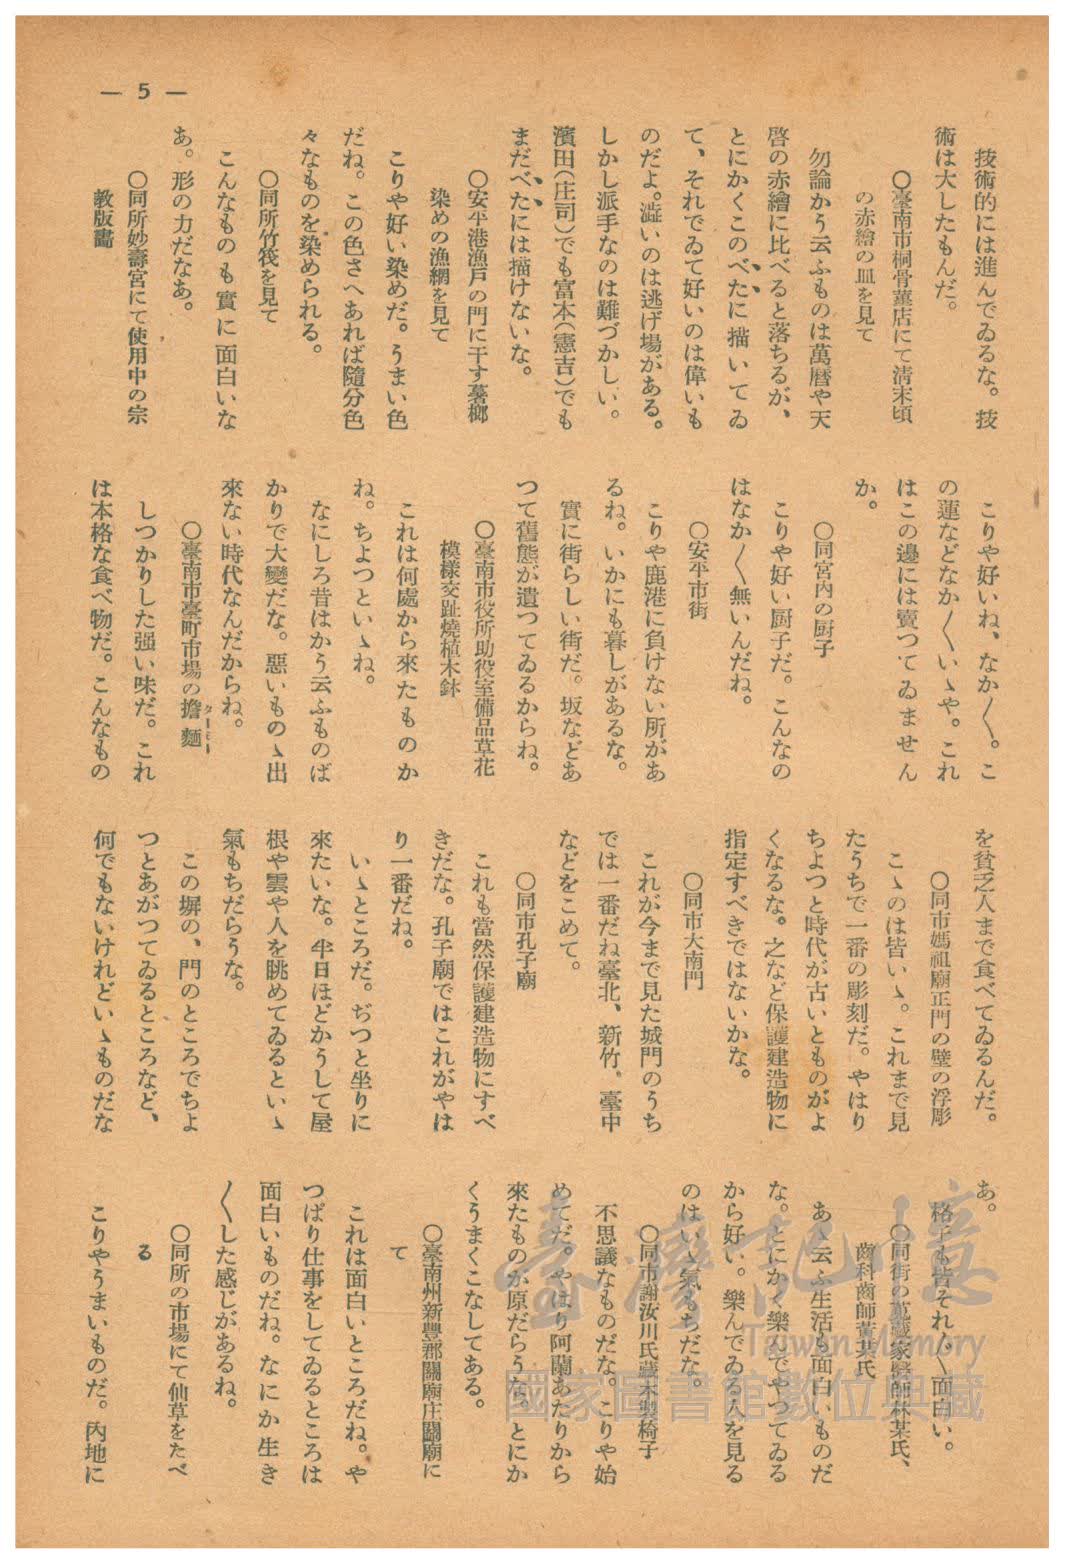 — 5 —
技術的には進んでゐるな。技
術は大したもんだ。
〇臺南市桐骨薑店にて淸末頃
の赤繪の皿を見て
勿論かう云ふものは萬曆や天
啓の赤繪に比べると落ちるが、
とにかくこのべたに描いてゐ
て、それでゐて好いのは偉いも
のだよ。澁いのは逃げ場がある。
しかし派手なのは難づかしい。
濱田(庄司)でも富本(憲吉)でも
まだべたには描けないな。
〇安平港漁戸の門に干す薯榔
染めの漁網を見て
こりや好い染めだ。うまい色
だね。この色さへあれば隨分色
々なものを染められる。
〇同所竹筏を見て
こんなものも實に面白いな
あ。形の力だなあ。
〇同所妙壽宮にて使用中の宗
敎版畵
こりや好いね、なか〱。こ
の蓮などなか〱いゝや。これ
はこの邊には賣つてゐません
か。
〇同宮內の厨子
こりや好い厨子だ。こんなの
はなか〱無いんだね。
〇安平市街
こりや鹿港に負けない所があ
るね。いかにも暮しがあるな。
實に街らしい街だ。坂などあ
つて舊態が遺つてゐるからね。
〇臺南市役所助役室備品草花
模樣交趾燒植木鉢
これは何處から來たものか
ね。ちよつといゝね。
なにしろ昔はかう云ふものば
かりで大變だな。惡いものゝ出
來ない時代なんだからね。
〇臺南市臺町市場の擔麵
しつかりした强い味だ。これ
は本格な食べ物だ。こんなもの
を貧乏人まで食べてゐるんだ。
〇同市媽祖廟正門の壁の浮彫
こゝのは皆いゝ。これまで見
たうちで一番の彫刻だ。やはり
ちよつと時代が古いとものがよ
くなるな。之など保護建造物に
指定すべきではないかな。
〇同市大南門
これが今まで見た城門のうち
では一番だね臺北、新竹、臺中
などをこめて。
〇同市孔子廟
これも當然保護建造物にすべ
きだな。孔子廟ではこれがやは
り一番だね。
いゝところだ。ぢつと坐りに
來たいな。半日ほどかうして屋
根や雲や人を眺めてゐるといゝ
氣もちだらうな。
この塀の、門のところでちよ
つとあがつてゐるところなど、
何でもないけれどいゝものだな
あ。
格子も皆それ〲面白い。
〇同街の萬藏家醫師林某氏、
齒科醫師黃某氏
あゝ云ふ生活も面白いものだ
な。とにかく樂んでやつてゐる
から好い。樂んでゐる人を見る
のはいゝ氣もちだな。
〇同市謝汝川氏藏木製椅子
不思議なものだな。こりや始
めてだ。やはり阿蘭あたりから
來たものが原だらうな。とにか
くうまくこなしてある。
〇臺南州新豐郡關廟庄關廟に
て
これは面白いところだね。や
つぱり仕事をしてゐるところは
面白いものだね。なにか生き
〱した感じがあるね。
〇同所の市場にて仙草をたべ
る
こりやうまいものだ。內地に
臺灣記憶
Taiwan Memory
國家圖書館數位典藏